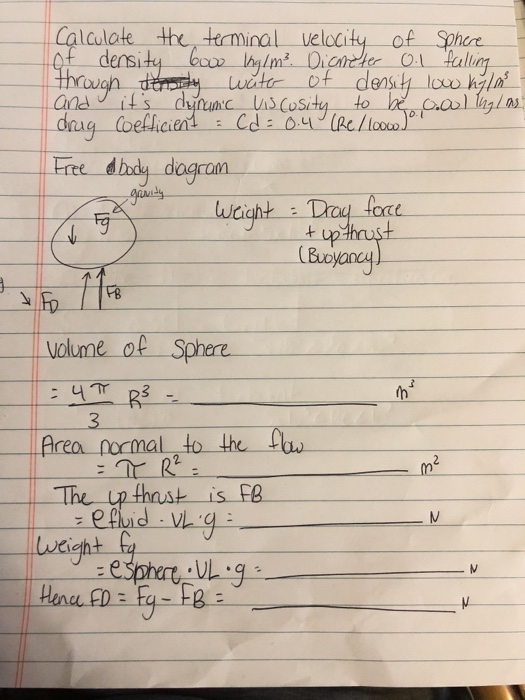 Calculate the terminal velocity of sphere
of density 6000 kg/m³. Diameter 0.1 falling
through density water of density 1000 kg/m³
and it's dynamic viscosity to be 0.001 kg/ms
drag coefficient = Cd = 0.4 (Re/10000)^0.1
Free body diagram
gravity
Fg
Weight = Drag force
+ upthrust
(Buoyancy)
FD
FB
Volume of sphere
= 4π/3 R³ = ____________ m³
Area normal to the flow
= π R² = ____________ m²
The upthrust is FB
= ρfluid · VL · g = ____________ N
Weight fg
= ρsphere · VL · g = ____________ N
Hence FD = Fg - FB = ____________ N